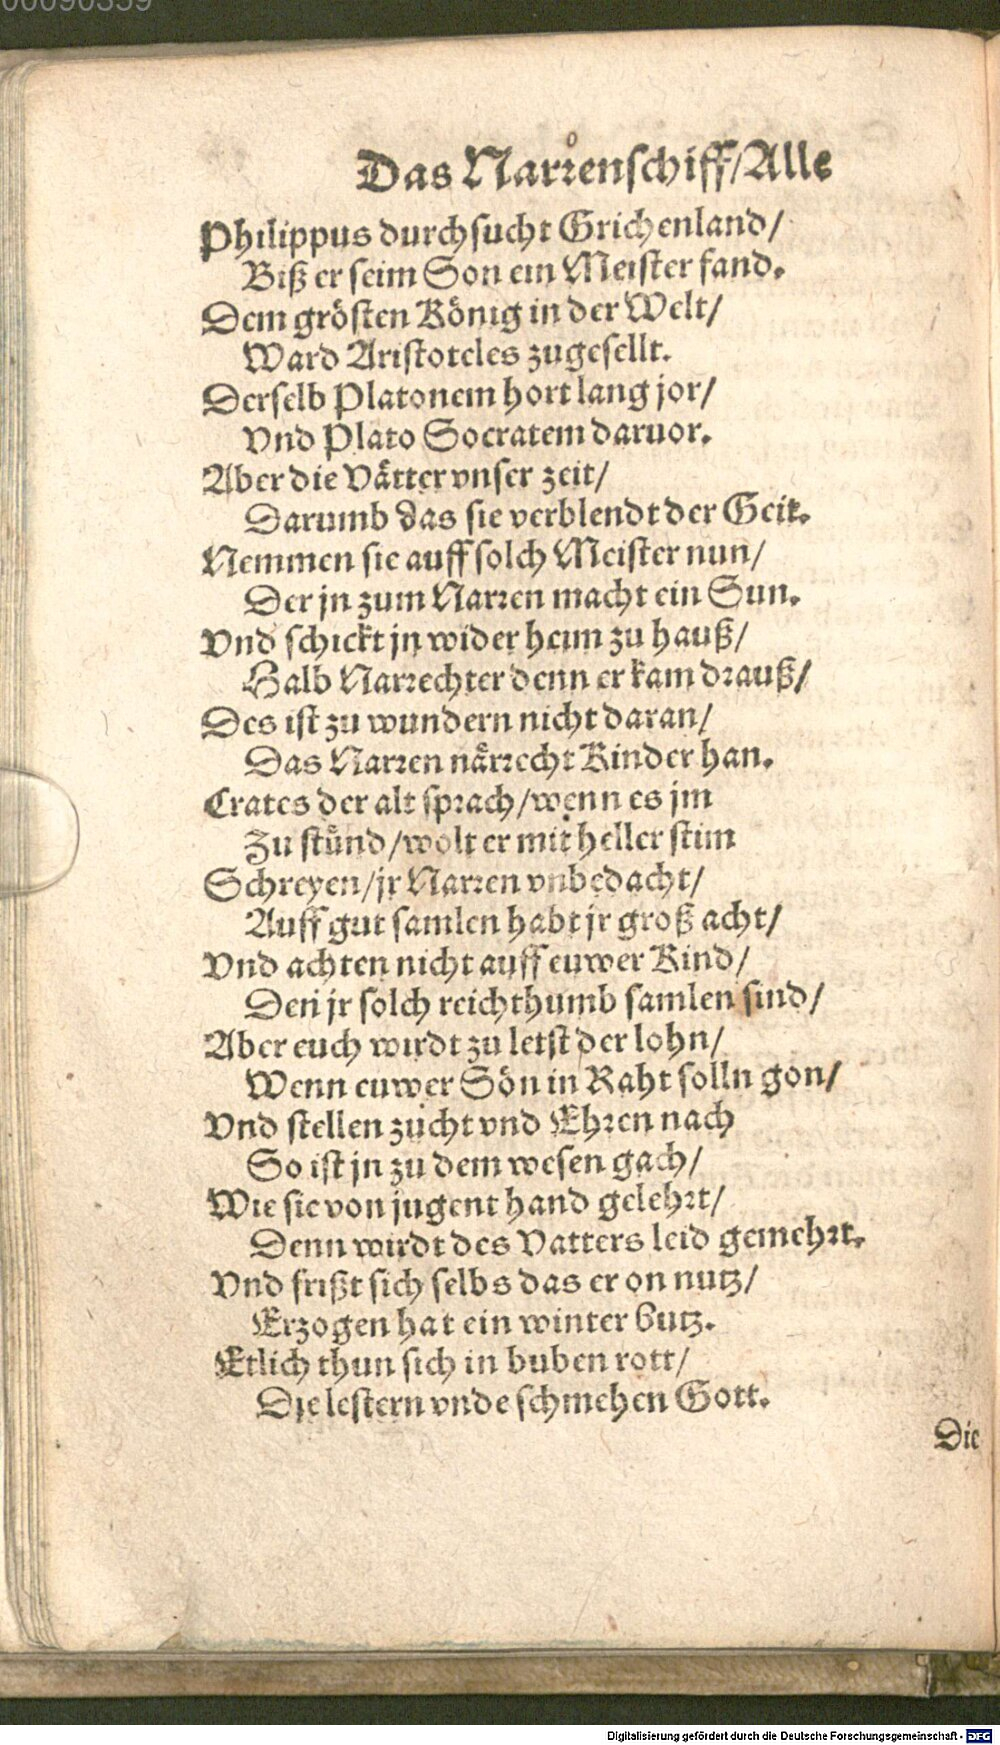 00090359
Das Narrenschiff/Alle
Philippus durchsucht Grichenland/
Biß er seim Son ein Meister fand.
Dem grösten König in der Welt/
Ward Aristoteles zugesellt.
Derselb Platonem hort lang jor/
Vnd Plato Socratem daruor.
Aber die Vätter vnser zeit/
Darumb das sie verblendt der Geit.
Nemmen sie auff solch Meister nun/
Der jn zum Narren macht ein Sun.
Vnd schickt jn wider heim zu hauß/
Halb Narrechter denn er kam drauß/
Des ist zu wundern nicht daran/
Das Narren närrecht Kinder han.
Crates der alt sprach/wenn es jm
Zu stünd/wolt er mit heller stim
Schreyen/jr Narren vnbedacht/
Auff gut samlen habt jr groß acht/
Vnd achten nicht auff euwer Kind/
Den jr solch reichthumb samlen sind/
Aber euch wirdt zu letst der lohn/
Wenn euwer Sön in Raht solln gon/
Vnd stellen zucht vnd Ehren nach
So ist jn zu dem wesen gach/
Wie sie von jugent hand gelehrt/
Denn wirdt des Vatters leid gemehrt.
Vnd frißt sich selbs das er on nutz/
Erzogen hat ein winter butz.
Etlich thun sich in buben rott/
Die lestern vnde schmehen Gott.
Die
Digitalisierung gefördert durch die Deutsche Forschungsgemeinschaft - DFG